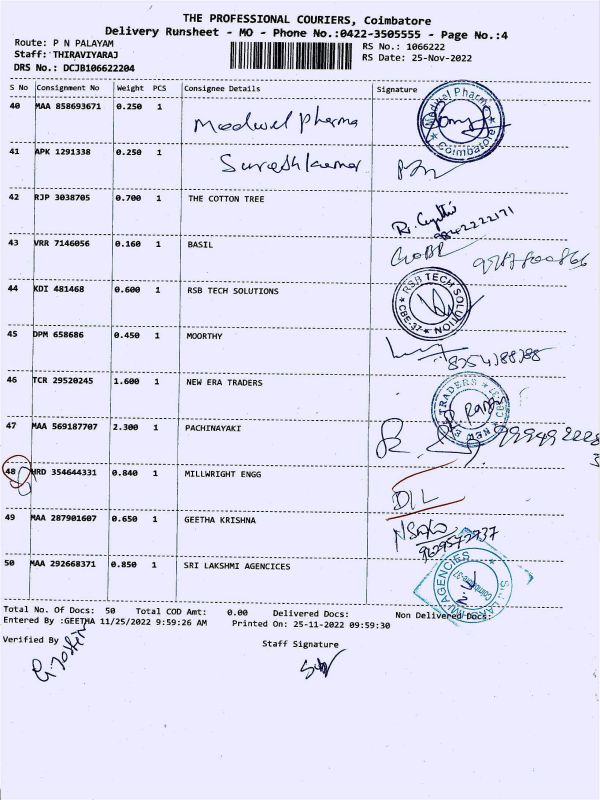 THE PROFESSIONAL COURIERS, Coimbatore
Delivery Runsheet - MO - Phone No.:0422-3505555 - Page No.:4
Route: P N PALAYAM
RS No.: 1066222
Staff: THIRAVIYARAJ
RS Date: 25-Nov-2022
DRS No.: DCJB106622204
S No Consignment No Weight PCS Consignee Details Signature
40 MAA 858693671 0.250 1 Medwel Pharma
Medwel Pharma Coimbatore
41 APK 1291338 0.250 1 Sureshkumar
42 RJP 3038705 0.700 1 THE COTTON TREE
9842222171
43 VRR 7146056 0.160 1 BASIL
44 KDI 481468 0.600 1 RSB TECH SOLUTIONS
RSB TECH SOLUTION CBE-37
45 DPM 658686 0.450 1 MOORTHY
46 TCR 29520245 1.600 1 NEW ERA TRADERS
47 MAA 569187707 2.300 1 PACHINAYAKI
48 HRD 354644331 0.840 1 MILLWRIGHT ENGG
DIL
49 MAA 287901607 0.650 1 GEETHA KRISHNA
50 MAA 292668371 0.850 1 SRI LAKSHMI AGENCICES
Total No. Of Docs: 50 Total COD Amt: 0.00 Delivered Docs: Non Delivered Docs:
Entered By :GEETHA 11/25/2022 9:59:26 AM Printed On: 25-11-2022 09:59:30
Verified By
Staff Signature